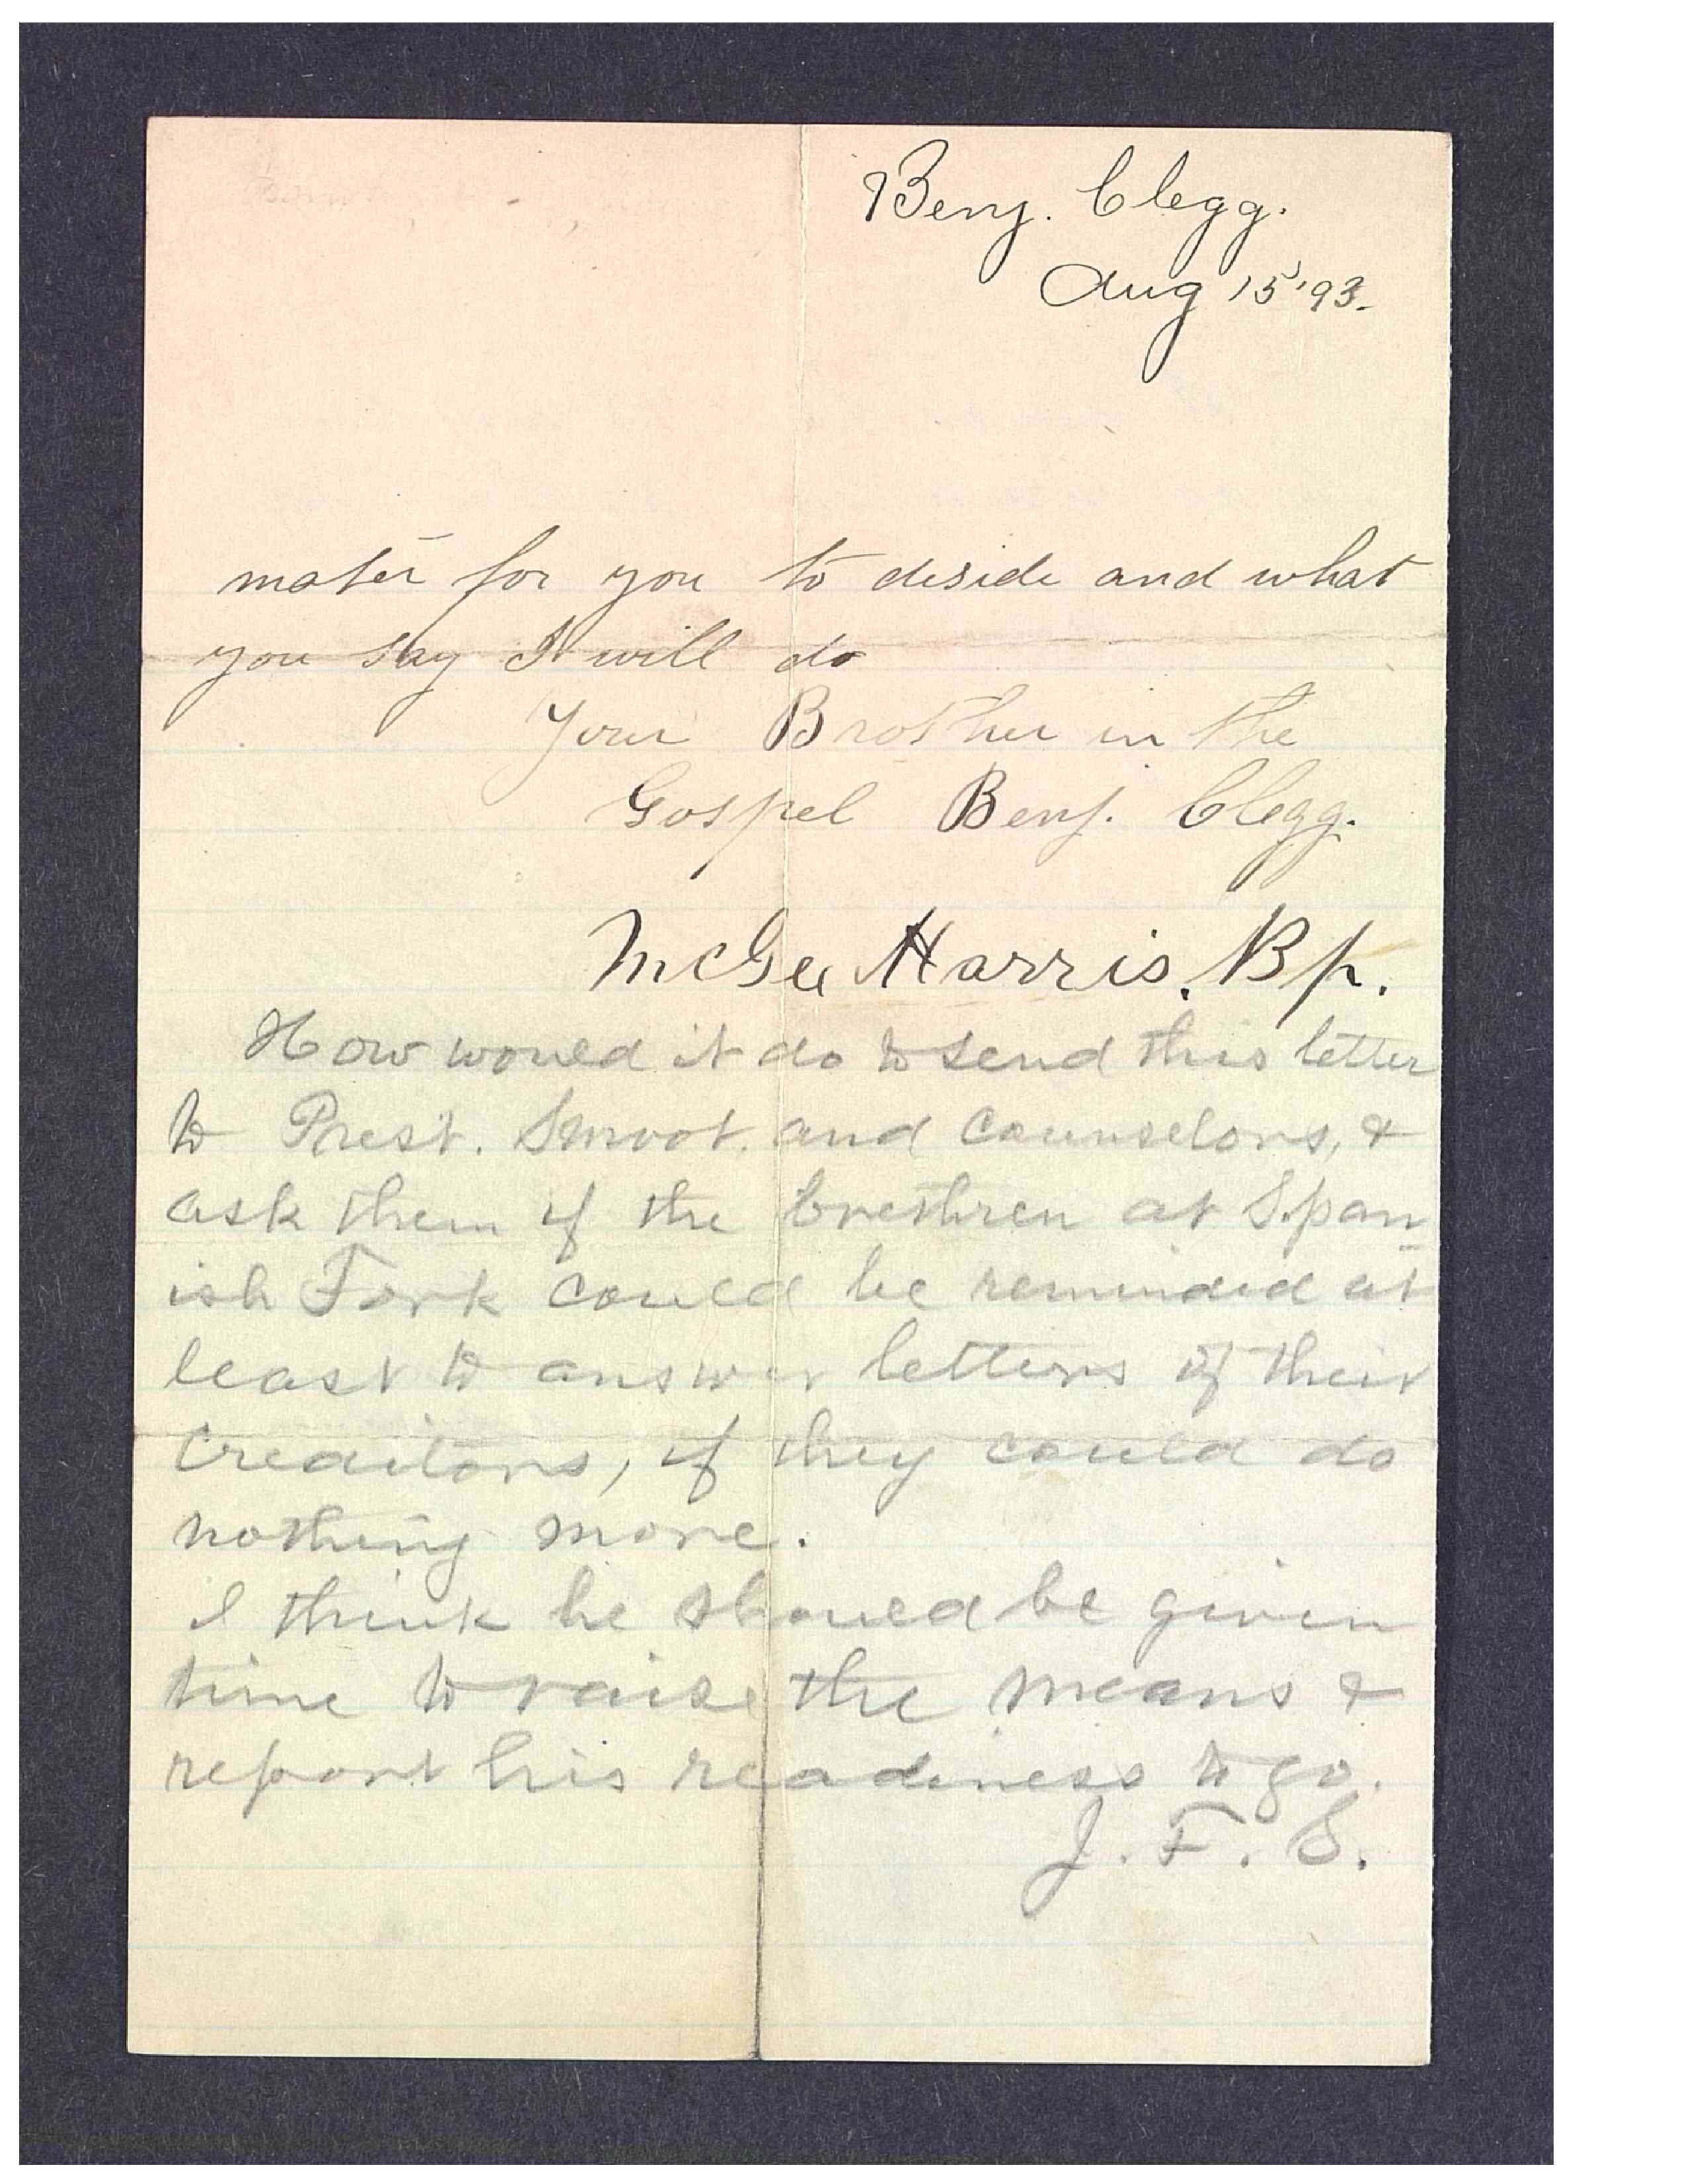 Benj. Clegg.
Aug 15 '93.
mater for you to deside and what
you say I will do
Your Brother in the
Gospel Benj. Clegg.
McGee Harris. Bp.
How would it do to send this letter
to Prest. Smoot. and Counselors, &
ask them if the brethren at Span
ish Fork could be reminded at
least to answer letters of their
Creditors, if they could do
nothing more.
I think he should be given
time to raise the means &
report his readiness to go.
J. F. S.